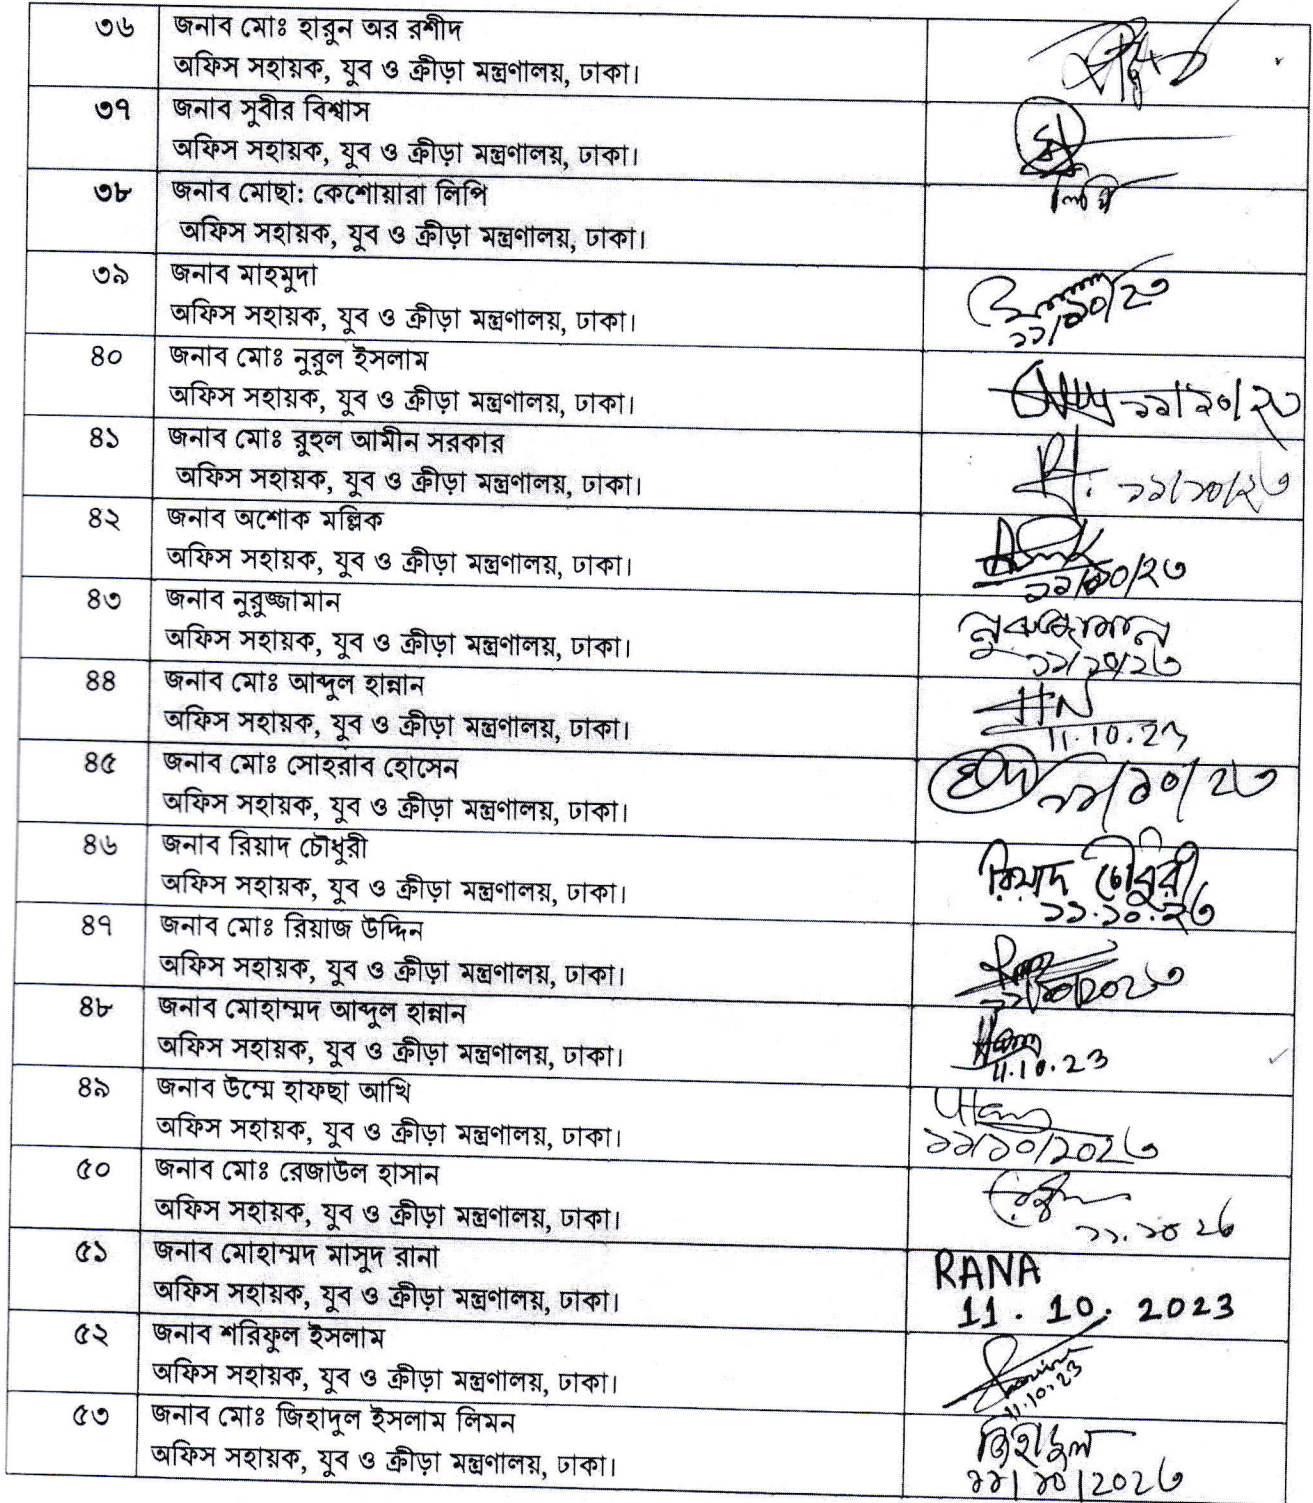 ৩৬ জনাব মোঃ হারুন অর রশীদ
অফিস সহায়ক, যুব ও ক্রীড়া মন্ত্রণালয়, ঢাকা।
৩৭ জনাব সুবীর বিশ্বাস
অফিস সহায়ক, যুব ও ক্রীড়া মন্ত্রণালয়, ঢাকা।
৩৮ জনাব মোছা: কেশোয়ারা লিপি লিপি
অফিস সহায়ক, যুব ও ক্রীড়া মন্ত্রণালয়, ঢাকা।
৩৯ জনাব মাহমুদা
অফিস সহায়ক, যুব ও ক্রীড়া মন্ত্রণালয়, ঢাকা। ১১/১০/২৩
৪০ জনাব মোঃ নুরুল ইসলাম
অফিস সহায়ক, যুব ও ক্রীড়া মন্ত্রণালয়, ঢাকা। ১১/১০/২৩
৪১ জনাব মোঃ রুহুল আমীন সরকার
অফিস সহায়ক, যুব ও ক্রীড়া মন্ত্রণালয়, ঢাকা। ১১/১০/২৩
৪২ জনাব অশোক মল্লিক
অফিস সহায়ক, যুব ও ক্রীড়া মন্ত্রণালয়, ঢাকা। ১১/১০/২৩
৪৩ জনাব নুরুজ্জামান নুরুজ্জামান
অফিস সহায়ক, যুব ও ক্রীড়া মন্ত্রণালয়, ঢাকা। ১১/১০/২৩
৪৪ জনাব মোঃ আব্দুল হান্নান
অফিস সহায়ক, যুব ও ক্রীড়া মন্ত্রণালয়, ঢাকা। 11.10.23
৪৫ জনাব মোঃ সোহরাব হোসেন
অফিস সহায়ক, যুব ও ক্রীড়া মন্ত্রণালয়, ঢাকা। ১১/১০/২৩
৪৬ জনাব রিয়াদ চৌধুরী রিয়াদ চৌধুরী
অফিস সহায়ক, যুব ও ক্রীড়া মন্ত্রণালয়, ঢাকা। ১১.১০.২৩
৪৭ জনাব মোঃ রিয়াজ উদ্দিন
অফিস সহায়ক, যুব ও ক্রীড়া মন্ত্রণালয়, ঢাকা। ১১/১০/২০২৩
৪৮ জনাব মোহাম্মদ আব্দুল হান্নান
অফিস সহায়ক, যুব ও ক্রীড়া মন্ত্রণালয়, ঢাকা। 11.10.23
৪৯ জনাব উম্মে হাফছা আখি
অফিস সহায়ক, যুব ও ক্রীড়া মন্ত্রণালয়, ঢাকা। ১১/১০/২০২৩
৫০ জনাব মোঃ রেজাউল হাসান
অফিস সহায়ক, যুব ও ক্রীড়া মন্ত্রণালয়, ঢাকা। ১১.১০ ২৩
৫১ জনাব মোহাম্মদ মাসুদ রানা RANA
অফিস সহায়ক, যুব ও ক্রীড়া মন্ত্রণালয়, ঢাকা। 11.10.2023
৫২ জনাব শরিফুল ইসলাম
অফিস সহায়ক, যুব ও ক্রীড়া মন্ত্রণালয়, ঢাকা। 11.10.23
৫৩ জনাব মোঃ জিহাদুল ইসলাম লিমন জিহাদুল
অফিস সহায়ক, যুব ও ক্রীড়া মন্ত্রণালয়, ঢাকা। ১১/১০/২০২৩